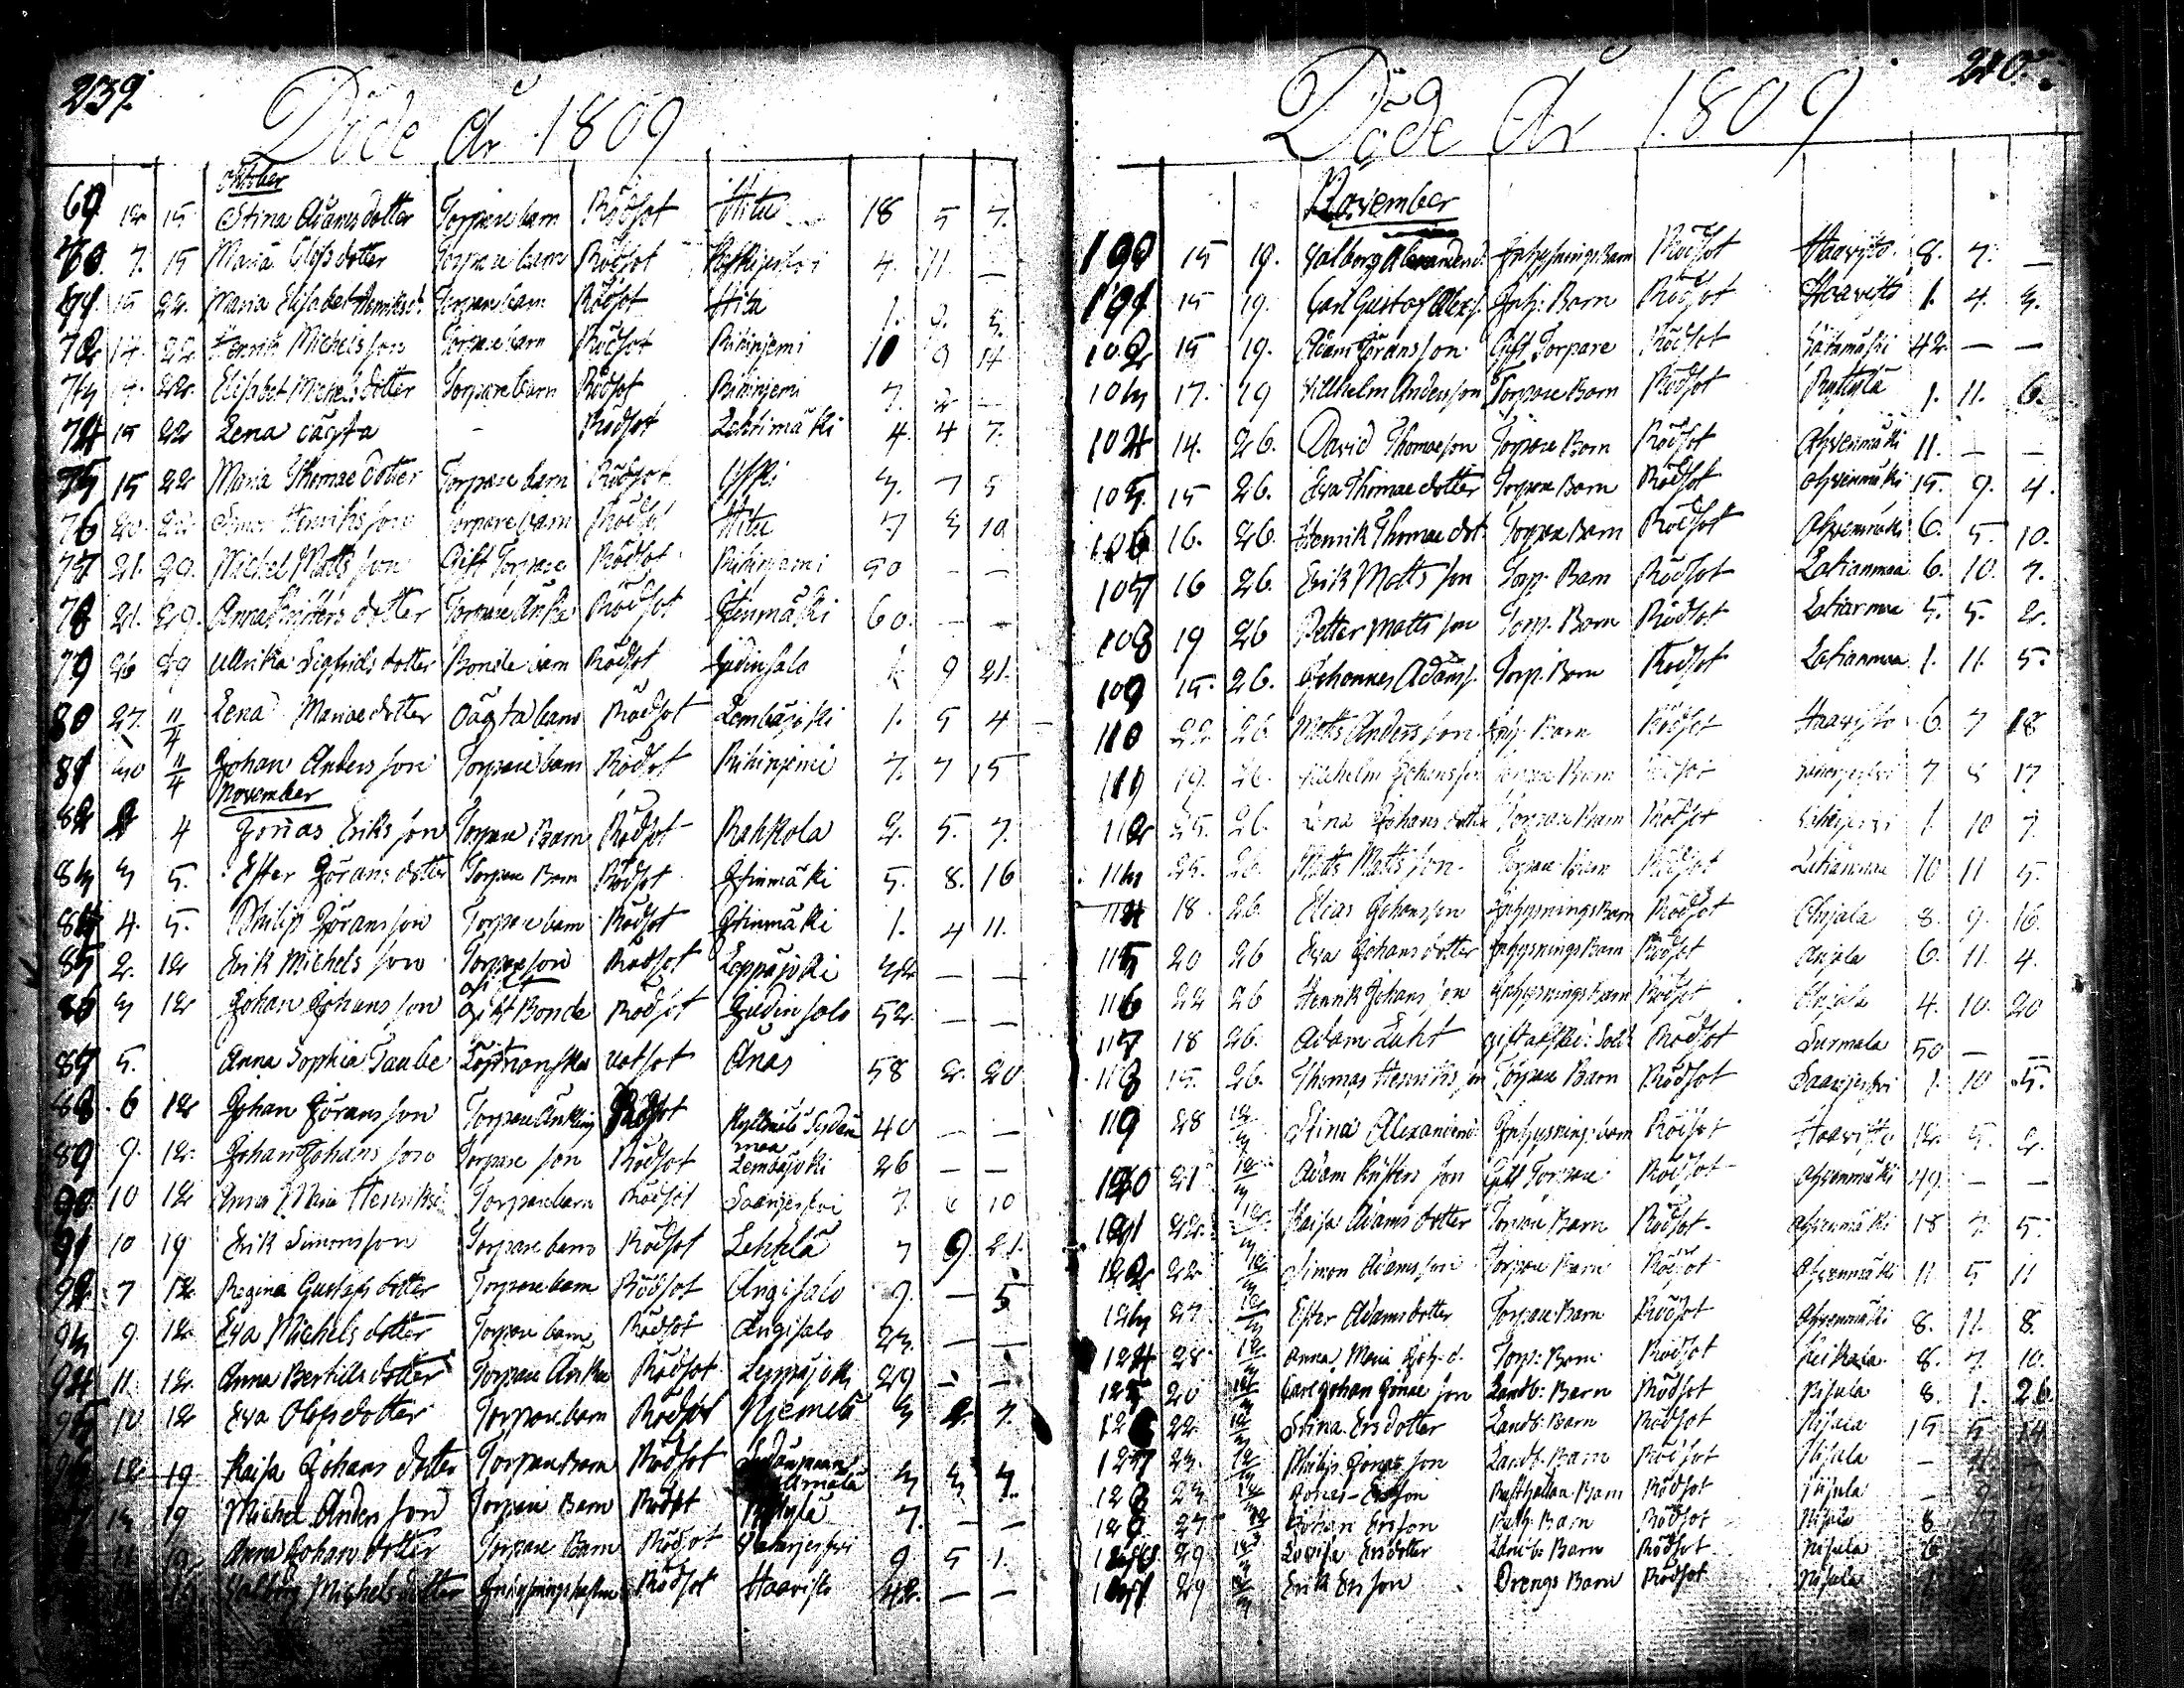 239.
Döde År 1809
Oktober
69 12 15 Stina Adamsdotter Torpare barn Rödsot Hitu 18 5 7.
70. 7. 15 Maria Olofsdotter Torpare barn Rödsot 4. 11. —
71. 15 22. Maria Elisabet Henriksd. Torpare barn Rödsot Hitu 1.
72 14. 22 Henrik Michelsson Torpare barn Rödsot Riihinjemi 10 9 14
73 22. Elisabet Michelsdotter Torpare barn Rödsot Riihinjemi 7. 2 —
74 15 22 Lena oägta - Rödsot Lehtimäki 4. 4 7.
75 15 22 Maria Thomaedotter Torpare barn Rödsot 3. 7 5
76 20. 22. Simon Henriksson Torpare barn Rödsot Hitu 7 3 10
77. 21. 29. Michel Mattsson Gift Torpare Rödsot Riihinjemi 50 — —
78 21. 29. Anna Kristersdotter Torpare Änka Rödsot Heinmäki 60. — —
79 26 29 Ullrika Sigfridsdotter Bonde barn Rödsot Hjidinsalo 1. 9 21.
80 27. 11/4 Lena Mariaedotter Oägta barn Rödsot Lembäjoki 1. 5 4
81 30 11/4 Johan Andersson Torpare barn Rödsot Riihinjemi 7. 7 15
November
82 2 4 Jonas Eriksson Torpare Barn Rödsot Rahkola 2. 5. 7.
83 3 5. Ester Göransdotter Torpare Barn Rödsot Heinmäki 5. 8. 16
84 4. 5. Philip Göransson Torpare barn Rödsot Heinmäki 1. 4 11.
85 2. 12 Erik Michelsson Torpareson Rödsot Leppäjoki — —
86 3 12 Johan Johansson Gift Bonde Rödsot Hjidinsalo 52. — —
87 5. Anna Sophia Taube Rotsot Ånäs 58 2. 20
88. 6 12 Johan Göransson Torpare Änkling Rödsot Kyttmälä Sydän maa 40 — —
89 9. 12. Johan Johansson Torpare son Rödsot Lembäjoki 26 — —
90. 10 12 Anna Maria Henriksd. Torpare barn Rödsot Saarijerfvi 7. 6 10
91 10 19 Erik Simonsson Torpare barn Rödsot Lehklä 7 9. 21.
92. 7 12. Regina Gustafsdotter Torpare barn Rödsot Angisalo 9. — 5
93 9. 12 Eva Michelsdotter Torpare barn Rödsot Angisalo 23. — —
94 11. 12. Anna Bertillsdotter Torpare Änka Rödsot Leppäjoki 29 — —
95 10 12 Eva Olofsdotter Torpare barn Rödsot Njemelä 3 2. 7.
96 12 19 Kaisa Johansdotter Torpare Barn Rödsot 3 3 7.
13 19 Michel Andersson Torpare Barn Rödsot 7. — —
Anna Johansdotter Torpare Barn Rödsot Saarijerfvi 9 5 1.
Valborg Michelsdotter Inhysnings Rödsot Haavisto 42. — —
240.
Döde År 1809
November
100 15 19. Valborg Alexandersd. Inhysnings Barn Rödsot Haavisto 8. 7. —
101 15 19. Carl Gustaf Alexs. Inh: Barn Rödsot Haavisto 1. 4. 3.
102 15 19. Adam Göransson Gift Torpare Rödsot 42 — —
103 17. 19 Villhelm Andersson Torpare Barn Rödsot Ryttylä 1. 11. 6.
104 14. 26. David Thomaeson Torpare Barn Rödsot Ahvenmäki 11. — —
105. 15 26. Eva Thomaedotter Torpare Barn Rödsot Ahvenmäki 15. 9. 4.
106 16. 26. Henrik Thomae dot. Torpare Barn Rödsot Ahvenmäki 6. 5. 10.
107 16 26. Erik Mattsson Torp. Barn Rödsot Latianmaa 6. 10. 7.
108 19 26 Petter Mattsson Torp. Barn Rödsot Latianmaa 5. 5. 2.
109 15. 26. Johannes Adams. Torp. Barn Rödsot Latianmaa 1. 11. 5.
110 22. 26. Matts Andersson Inh. Barn Rödsot Haavisto 6. 7 18
111 19. 26. Vilhelm Johansson Torpare Barn Rödsot 7 8 17
112 25. 26. Lena Johansdotter Torpare Barn Rödsot 1. 10 7.
113 25. 26. Matts Mattsson Torpare Barn Rödsot Latianmaa 10 11 5.
114 18. 26. Elias Johansson Inhysnings Barn Rödsot Anjala 8. 9. 16.
115 20 26 Eva Johansdotter Inhysnings Barn Rödsot Anjala 6. 11. 4.
116 22 26 Henrik Johansson Inhysnings Barn Rödsot Anjala 4. 10. 20
117 18 26. Adam Luht gift afsk: Sold. Rödsot Surmala 50 — —
118 15. 26. Thomas Henriksson Torpare Barn Rödsot Saarijerfvi 1. 10 5.
119 28 12/3 Stina Alexandersd. Inhysnings barn Rödsot Haavisto 12. 5. 2.
120 21 12/3 Adam Kristersson Gift Torpare Rödsot Ahvenmäki 49. — —
121 22. 12/3 Kaisa Adamsdotter Torpare Barn Rödsot Ahvenmäki 18 7. 5.
122 22 12/3 Simon Adamsson Torpare Barn Rödsot Ahvenmäki 11 5 11
123 27 12/3 Ester Adamsdotter Torpare Barn Rödsot Ahvenmäki 8. 11. 8.
124 28 12/3 Anna Maria Joh. d. Torp: Barn Rödsot 8. 7. 10.
125 20 12/3 Carl Johan Jonaeson Landb: Barn Rödsot Nisula 8. 1. 26
126 22 12/3 Stina Ersdotter Landb: Barn Rödsot Nisula 15 5 14
127 23. 12/3 Philip Jonaeson Landb. Barn Rödsot Nisula
128 23 12/3 Jonas Ersson Rusthållar Barn Rödsot Nisula
129 27 12/3 Johan Ersson Rusth. Barn Rödsot Nisula 8
130 29 12/3 Lovisa Ersdotter Landb. Barn Rödsot Nisula
131 29 12/3 Erik Ersson Drengs Barn Rödsot Nisula